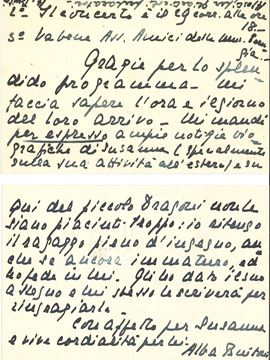 Il Concerto è il 29 corr. alle ore
18.-
Va bene Ass. Amici della Mus.
Grazie per lo splen-
dido programma. Mi
faccia sapere l'ora e il giorno
del loro arrivo. Mi mandi
per espresso ampie notizie bio-
grafiche di Susanna (specialmente
sulla sua attività all'estero) e su
Qui del piccolo Dragoni non le
siano piaciuti troppo: io ritengo
il ragazzo pieno d'ingegno, an-
che se ancora immaturo, ed
ho fede in lui. Gli ho dato il suo
assegno e lui stesso le scriverà per
ringraziarla.
Con affetto per Susanna
e vive cordialità per lei
Alba